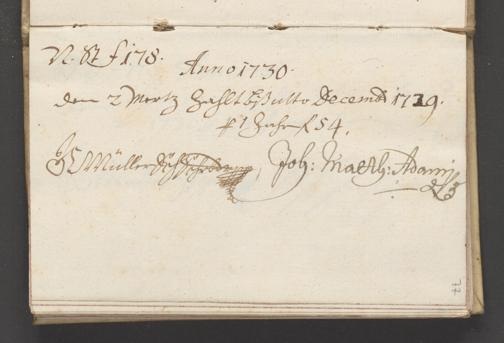 N. St f 178.
Anno 1730.
den 2 Mertz zahlt bis ulto Decembr 1729.
1 Jahr f 54.
Müller
Joh: Math: Adami
77